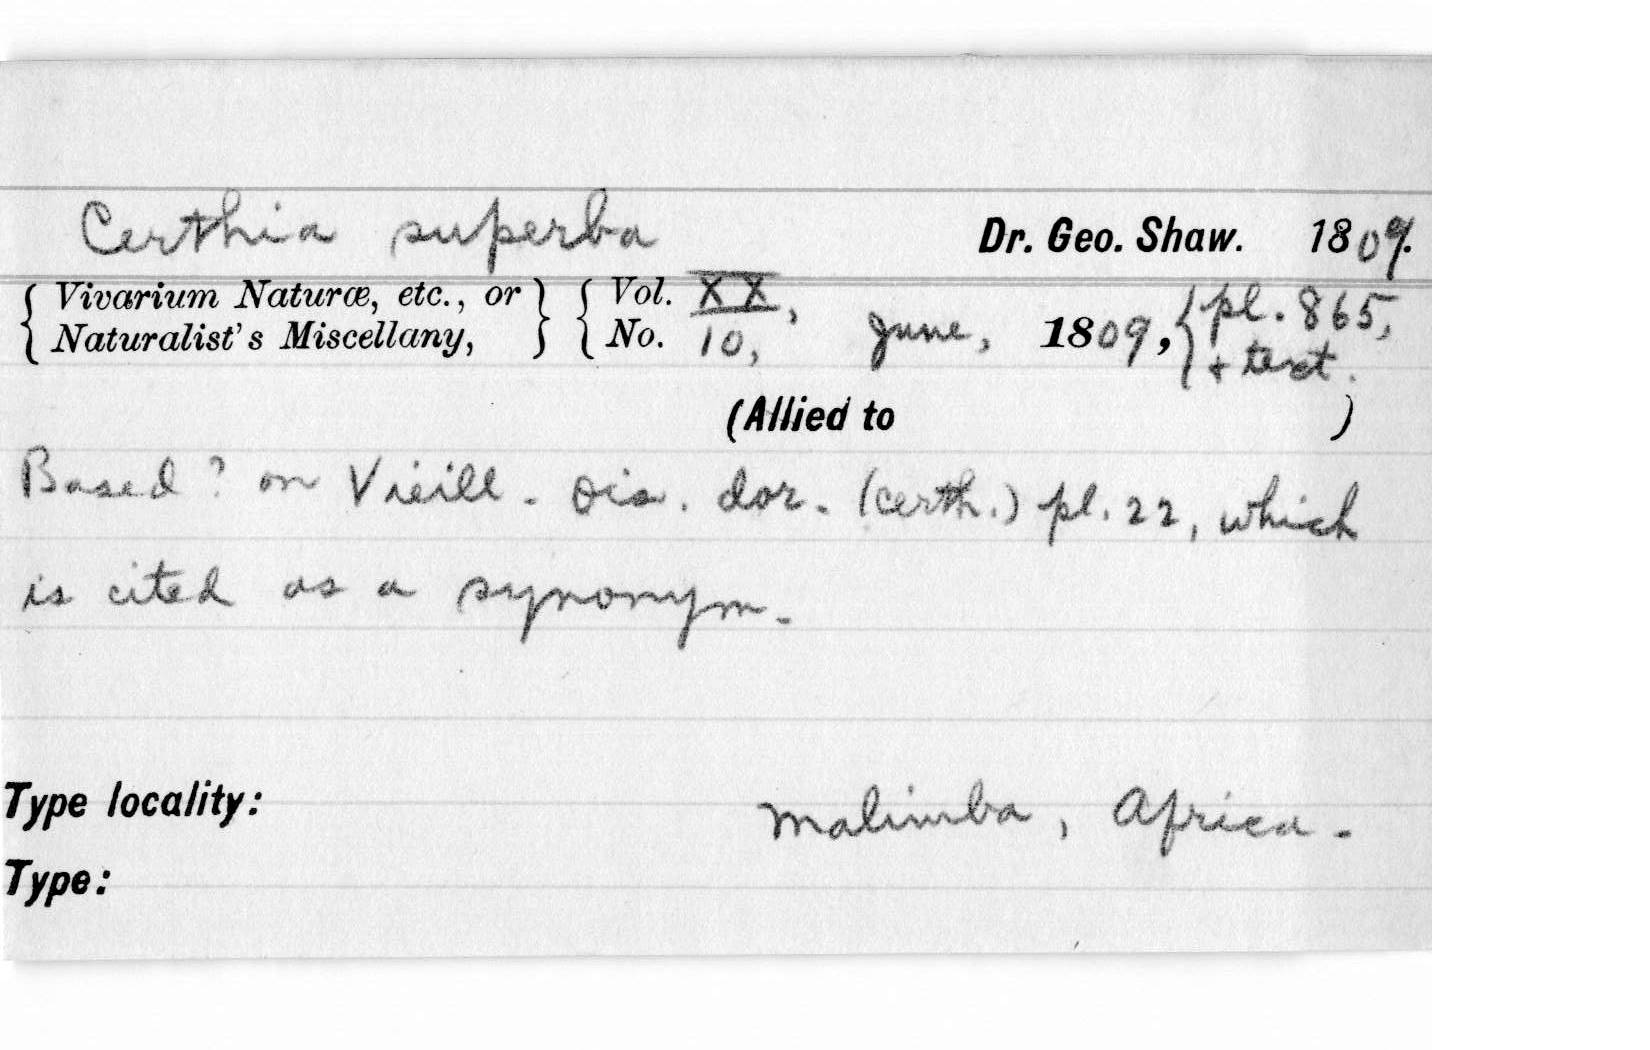 Certhia superba Dr. Geo. Shaw. 1809.
{ Vivarium Naturæ, etc., or } { Vol. XX, { pl. 865,
{ Naturalist's Miscellany, } { No. 10, June, 1809, { + text.
(Allied to )
Based ? on Vieill. Ois. dor. (Certh.) pl. 22, which
is cited as a synonym.
Type locality: Malimba, Africa.
Type: